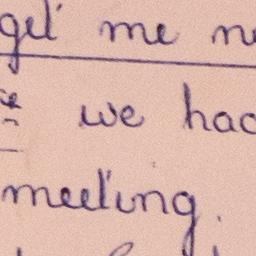 get me
we had
meeting.